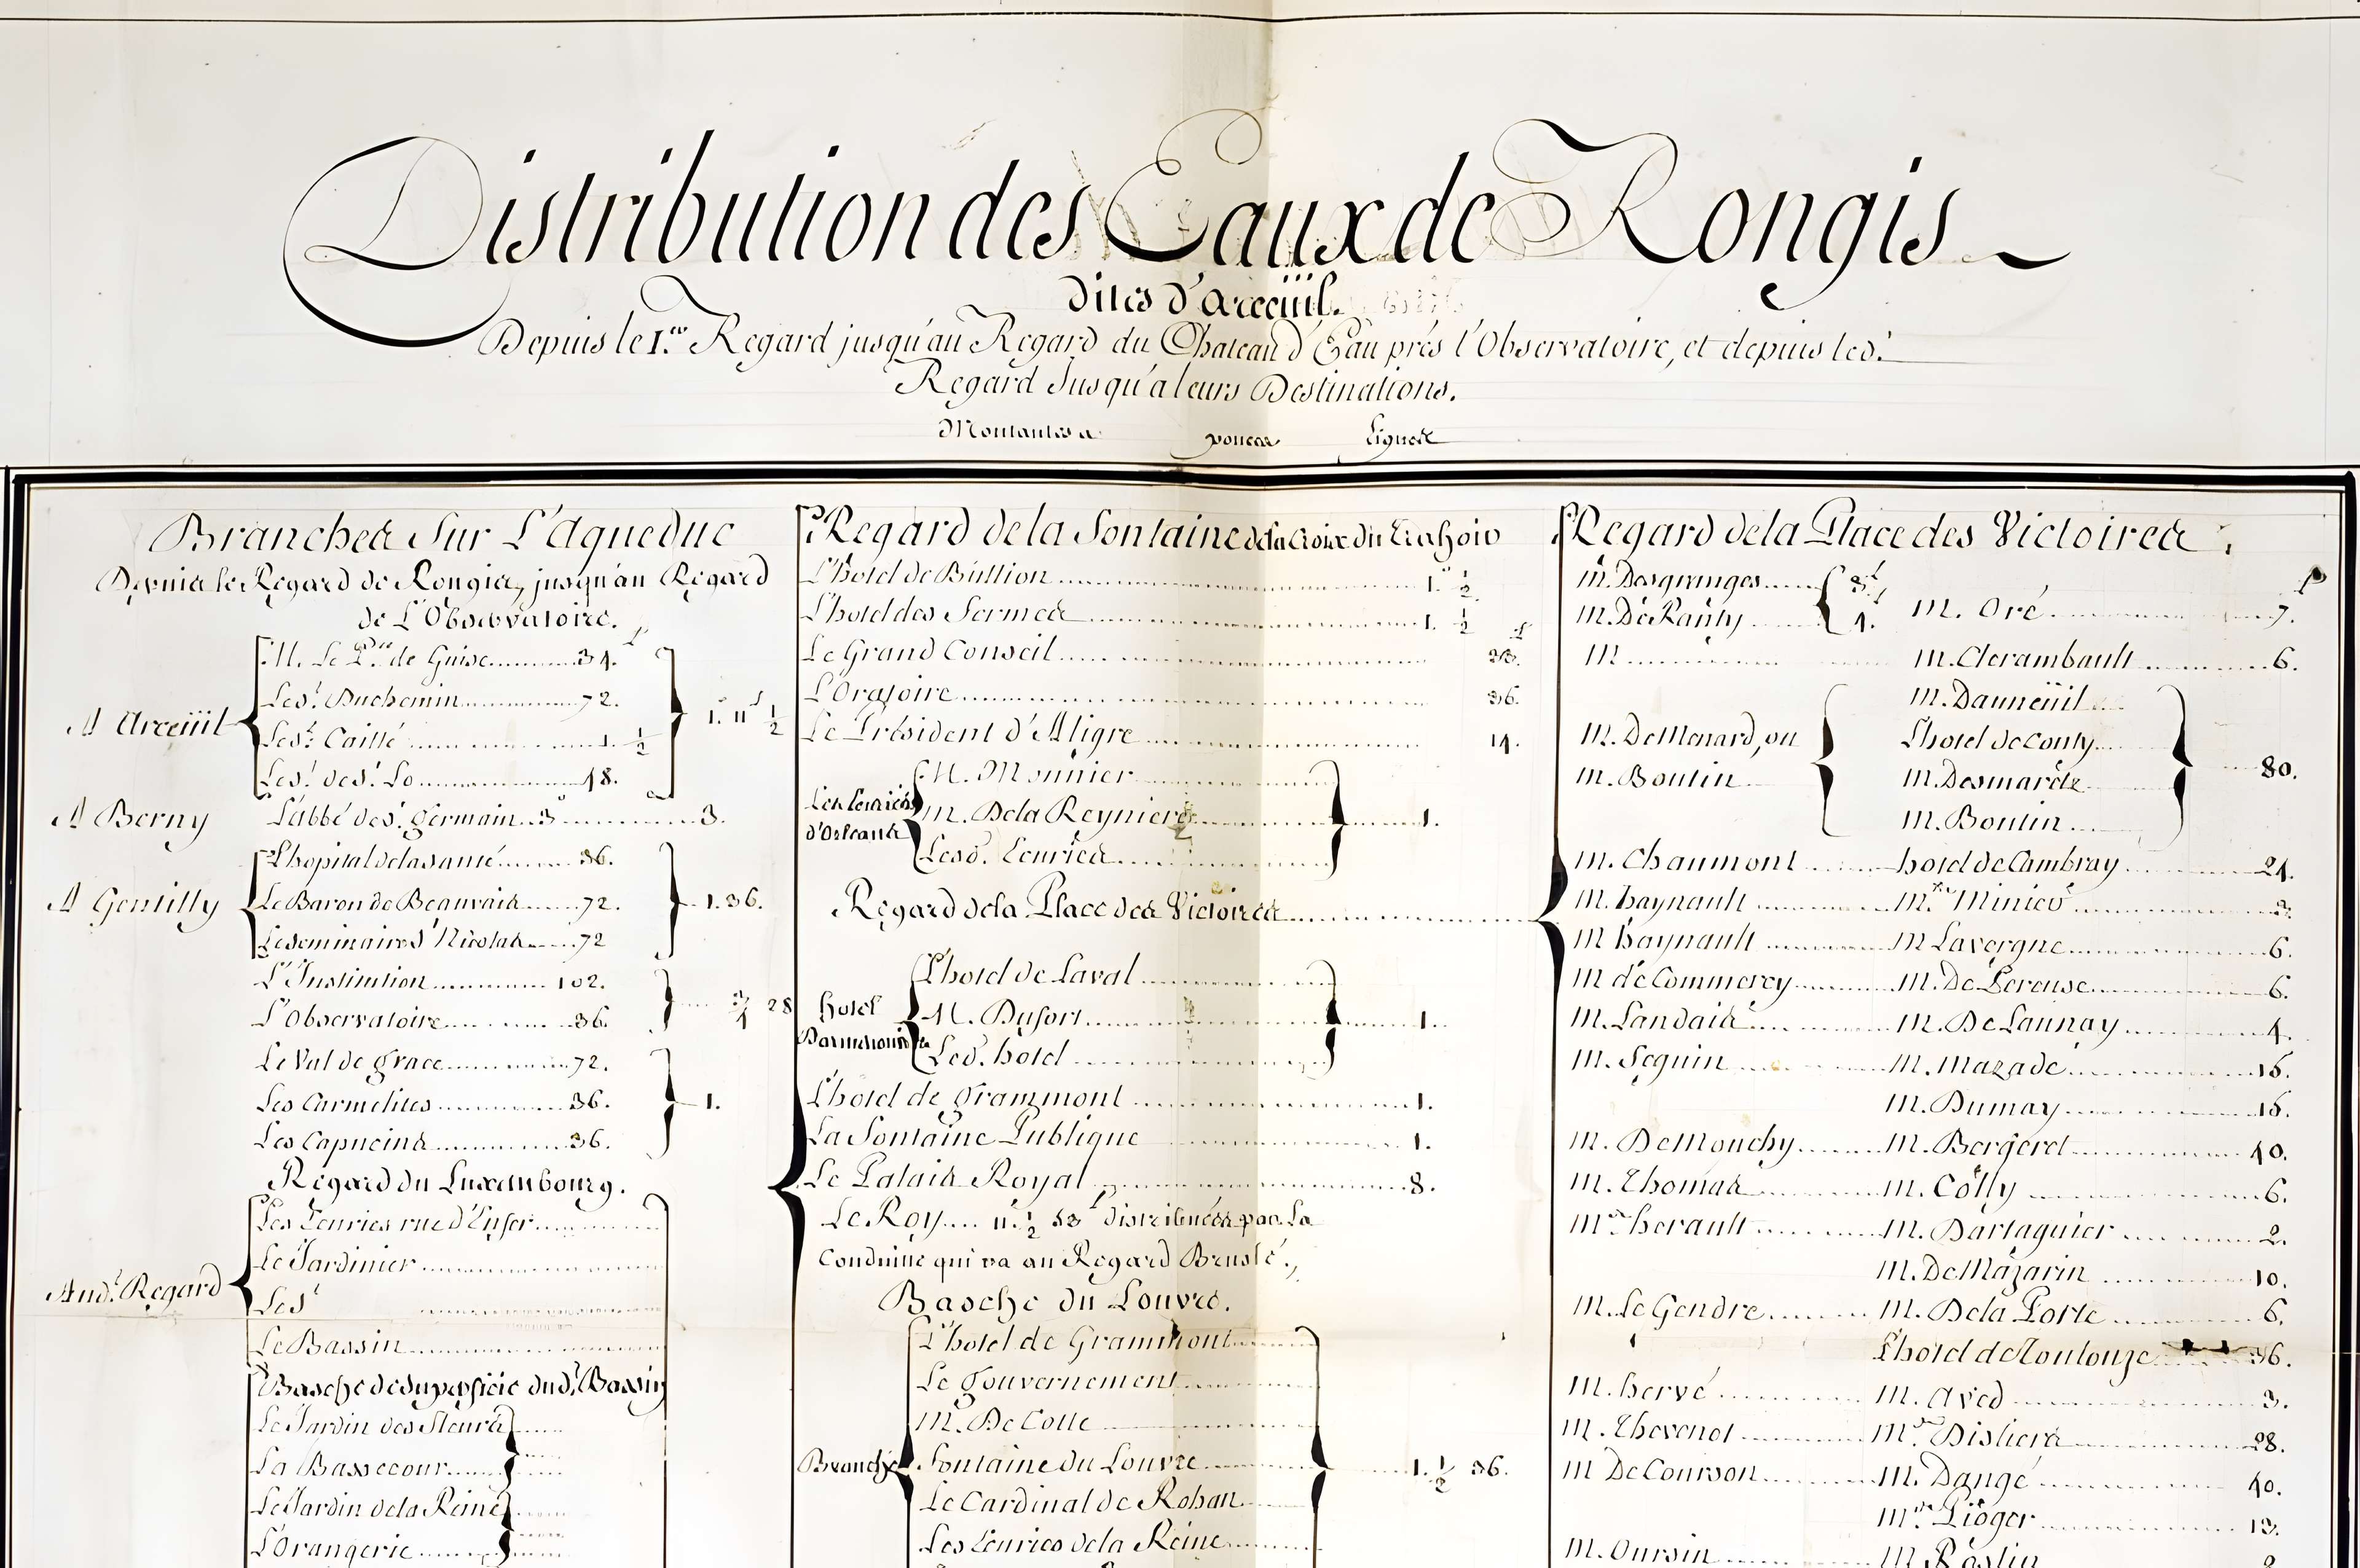 Distribution des Eaux de Rongis
dites d'arceüil.
Depuis le 1.er Regard jusqu'au Regard du Chateau d'Eau prés l'Observatoire, et depuis led.t
Regard Jusqu'a leurs Destinations.
Montantes a pouces Lignes
Branches Sur L'Aqueduc
Depuis le Regard de Rongis, jusqu'au Regard
de L'Observatoire.
A Arceüil
M. Le P.ce de Guise 34.
Le s.r Duchemin 72.
Le s.r Caillé 1. 1/2
Le s.r de s.t Lo 48.
1. 11 1/2
A Berny L'abbé de s.t germain 3 3.
A Gentilly
L'hopital de la santé 36.
Le Baron de Beauvais 72.
Le seminaire s.t Nicolas 72
1. 36.
L'Institution 102.
L'Observatoire 36.
3/4 28
Le Val de grace 72.
Les Carmelites 36.
Les Capucins 36.
1.
Regard du Luxembourg.
Au d.t Regard
Les Ecuries rue d'Enfer
Le Jardinier
Le s.r
Le Bassin
Basche de superficie du d.t Bassin
Le Jardin des fleurs
La Bassecour
Le Jardin de la Reine
L'Orangerie
Regard de la fontaine de la Croix du Trahoir
L'hotel de Bullion 1. 1/2
L'hotel des fermes 1. 1/2
Le Grand Conseil
L'Oratoire 36.
Le Président d'Aligre 14.
Les Ecuries d'Orleans
M. Monnier
M. De la Reyniere
Les d. Ecuries
1.
Regard de la Place des Victoires
hotel
L'hotel de Laval
M. Dufort
Led. hotel
1.
L'hotel de grammont 1.
La fontaine Publique 1.
Le Palais Royal 8.
Le Roy 11. 1/2 53 l distribuées par la
Conduite qui va au Regard Bruslé.
Basche du Louvre.
Branche
L'hotel de Grammont
Le gouvernement
M. De Cotte
fontaine du Louvre
Le Cardinal de Rohan
Les Ecuries de la Reine
1. 1/2 36.
Regard de la Place des Victoires
M. Desgranges 3.
M. De Ranty 4.
M. Oré 7.
M. M. Clerambault 6.
M. De Menard, ou
M. Boutin
M. Dauneüil
L'hotel de Conty
M. Desmarets
M. Boutin
80.
M. Chaumont hotel de Cambray 24.
M. haynault M. Minico 3.
M haynault M Lavergne 6.
M de Commercy M. De Bereuse 6.
M. Landais M. De Launay 4.
M. Seguin M. Mazade 15.
M. Dumay 15.
M. De Mouchy M. Bergeret 40.
M. Thomas M. Colly 6.
M.de herault M. Dartaguier 2.
M. De Mazarin 10.
M. Le Gendre M. De la Porte 6.
L'hotel de Toulouze 36.
M. hervé M. Aved 3.
M. Thevenot M. Disliers 28.
M De Courson M. Dangé 40.
M.de Pioger 13.
M. Oursin M. Roslin